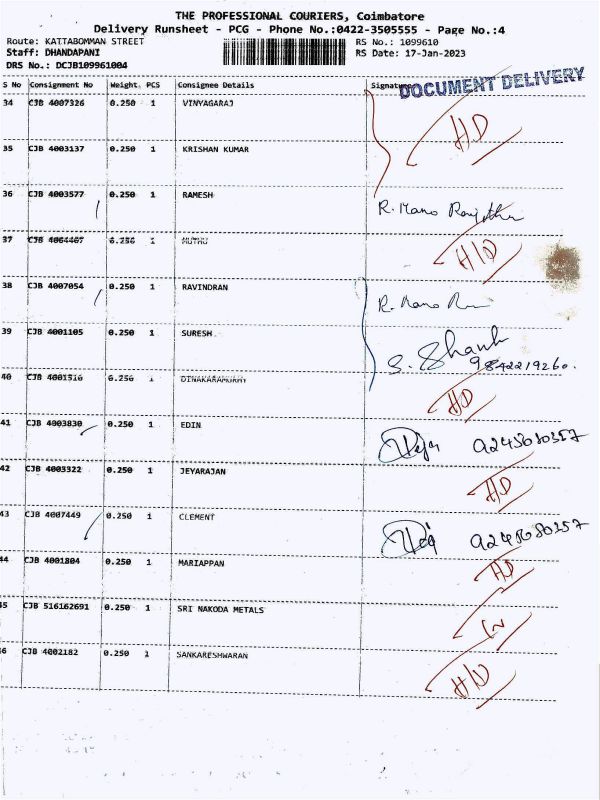 THE PROFESSIONAL COURIERS, Coimbatore
Delivery Runsheet - PCG - Phone No.:0422-3505555 - Page No.:4
Route: KATTABOMMAN STREET RS No.: 1099610
Staff: DHANDAPANI RS Date: 17-Jan-2023
DRS No.: DCJB109961004
S No Consignment No Weight. PCS Consignee Details Signature
DOCUMENT DELIVERY
34 CJB 4007326 0.250 1 VINYAGARAJ HD
35 CJB 4003137 0.250 1 KRISHAN KUMAR
36 CJB 4003577 0.250 1 RAMESH R. Mano
37 0.250 1 MUTHU H/D
38 CJB 4007054 0.250 1 RAVINDRAN R. Mano
39 CJB 4001105 0.250 1 SURESH S. 9842219260.
40 CJB 4001516 0.250 1 HD
41 CJB 4003830 0.250 1 EDIN
42 CJB 4003322 0.250 1 JEYARAJAN HD
43 CJB 4007449 0.250 1 CLEMENT
44 CJB 4001804 0.250 1 MARIAPPAN HD
45 CJB 516162691 0.250 1 SRI NAKODA METALS
46 CJB 4002182 0.250 1 SANKARESHWARAN H/D